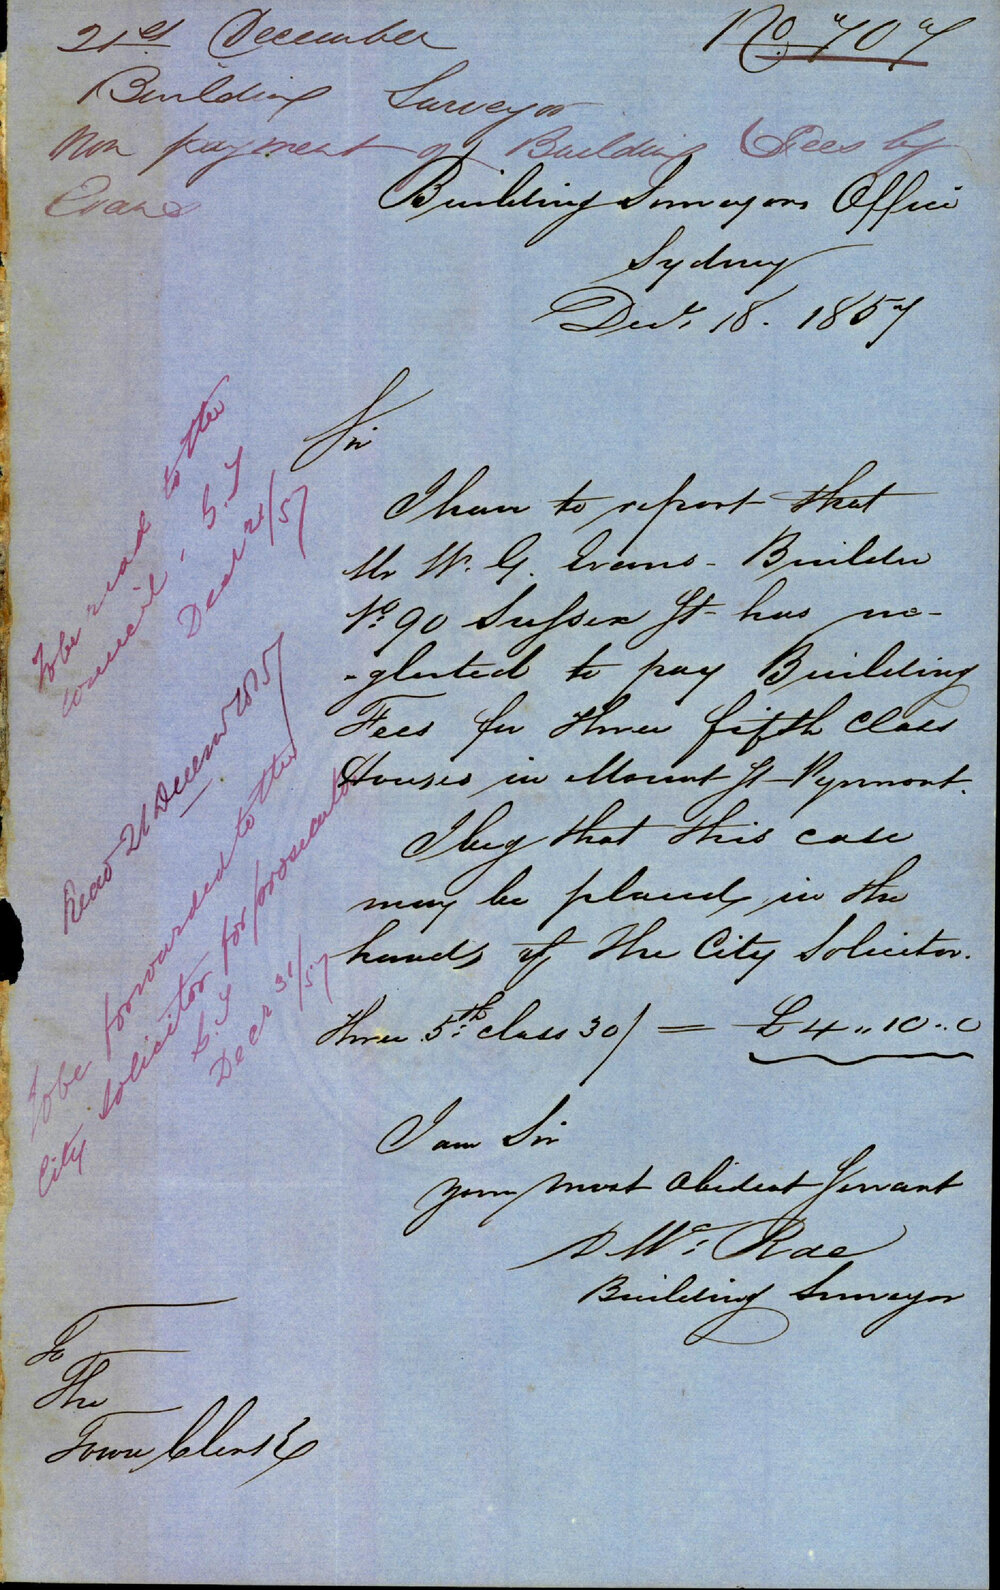 21st December
No. 707
Building Surveyor
Non payment of Building Fees by
Evans
Building Surveyors Office
Sydney
Decr. 18. 1857
Sir
I have to report that
Mr W. G. Evans - Builder
No. 90 Sussex St - has ne-
-glected to pay Building
Fees for three fifth class
Houses in Mount St - Pyrmont.
I beg that this case
may be placed in the
hands of the City Solicitor.
Three 5th class 30/ = £4 " 10 " 0
I am Sir
your most obedient Servant
D. Mc. Rae
Building Surveyor
To
The
Town Clerk
To be read to the
Council.
Decr 21/57
Read 21 December 1857
To be forwarded to the
City Solicitor for prosecution
Decr 31/57